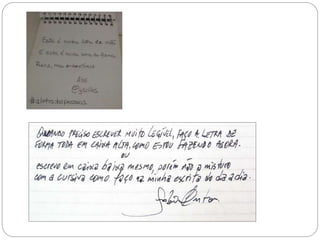 Esta é minha letra de mão
E esta é minha letra de forma
Rara, mas encontrável
@
#aletradapessoa
QUANDO PRECISO ESCREVER MUITO LEGÍVEL, FAÇO A LETRA DE
FORMA TODA EM CAIXA ALTA, COMO ESTOU FAZENDO AGORA.
OU
escrevo em caixa baixa mesmo, porém não a misturo
com a cursiva como faço na minha escrita do dia a dia.